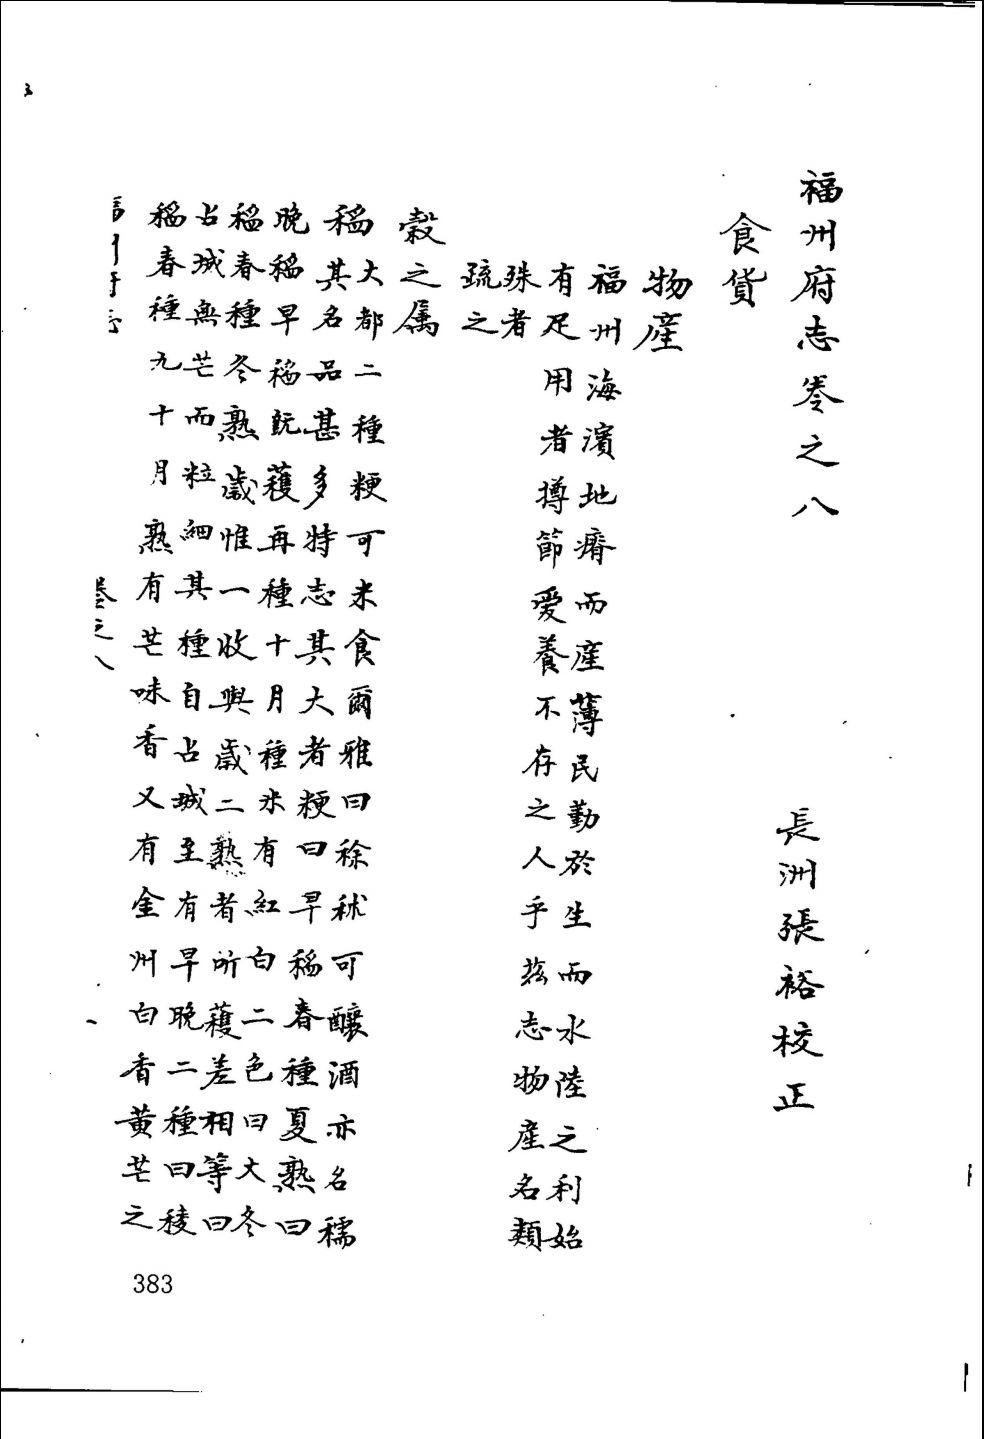 福州府志卷之八
長洲張裕校正
食貨
物産
福州海濱地瘠而産薄民勤於生而水陸之利始
有足用者撙節愛養不存之人乎茲志物産名類
殊者
疏之
穀之属
稲
大都二種粳可米食爾雅曰稌秫可釀酒亦名穤
其名品甚多特志其大者粳曰早稲春種夏熟曰
晚稲早稲既穫再種十月種米有紅白二色曰大冬
稲春種冬熟歲惟一收與歲二熟者所穫差相等曰
占城無芒而粒細其種自占城至有早晚二種曰稜
稲春種九十月熟有芒味香又有金州白香黄芒之
卷之八
383